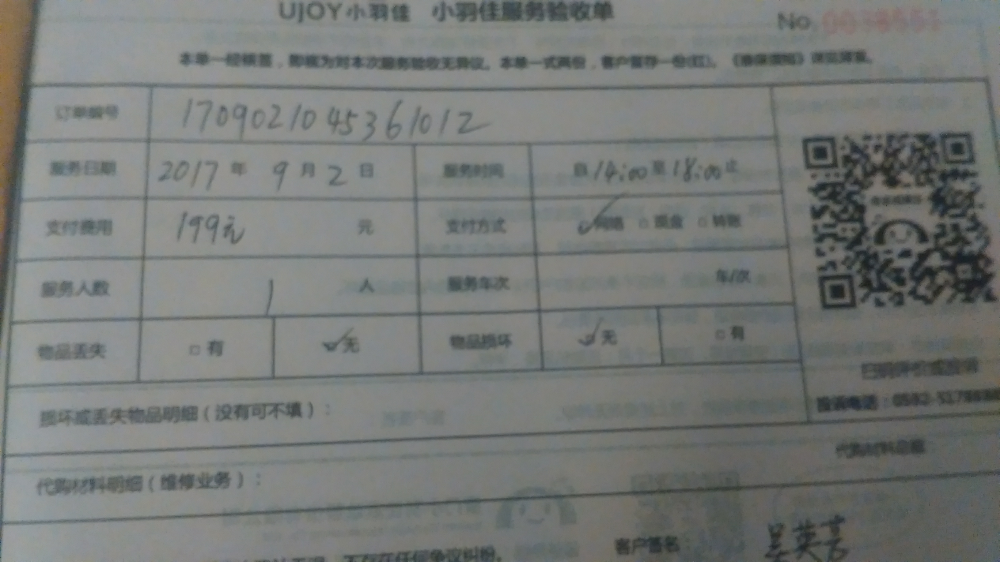 UJOY小羽佳 小羽佳服务验收单
No. 0038551
本单一经核签，即视为对本次服务验收无异议。本单一式两份，客户留存一份(红)。
订单编号 1709021045361012
服务日期 2017 年 9 月 2 日 服务时间 自 14:00 至 18:00 止
支付费用 199元 元 支付方式 网络 现金 转账
服务人数 1 人 服务车次 车/次
物品丢失 有 无 物品损坏 无 有
扫码评价或投诉
损坏或丢失物品明细（没有可不填）：
投诉电话：0592-
代购材料总额
代购材料明细（维修业务）：
客户签名：
不存在任何争议纠纷。